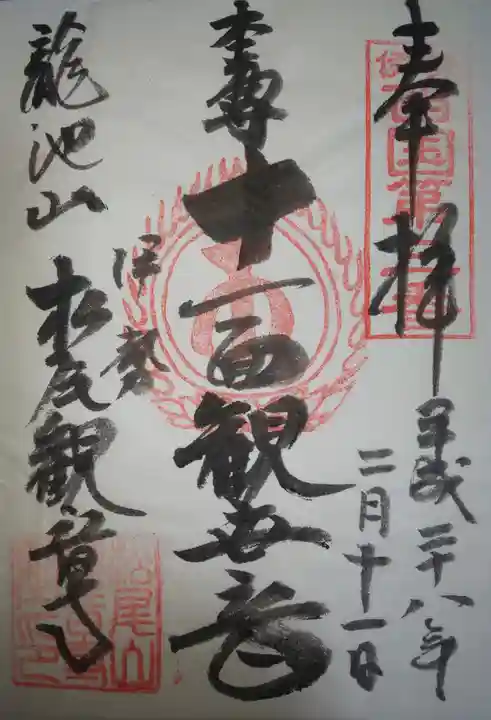 奉拝
平成二十八年
二月十一日
本尊
十一面観世音
伊勢
龍池山
松尾観音寺